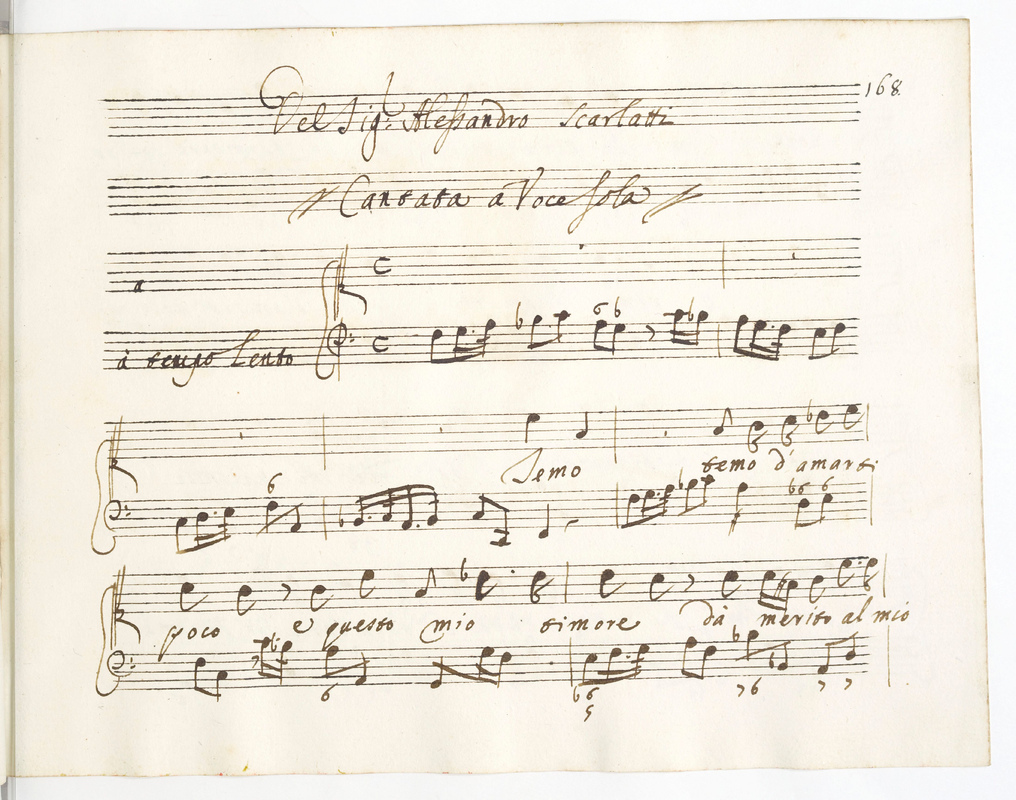 168.
Del Sig.r Alessandro Scarlatti
Cantata a Voce Sola
à tempo lento
6 b
6
Temo temo d'amarti
b6 6
poco e questo mio timore dà merito al mio
6 b6 76 7 7
5